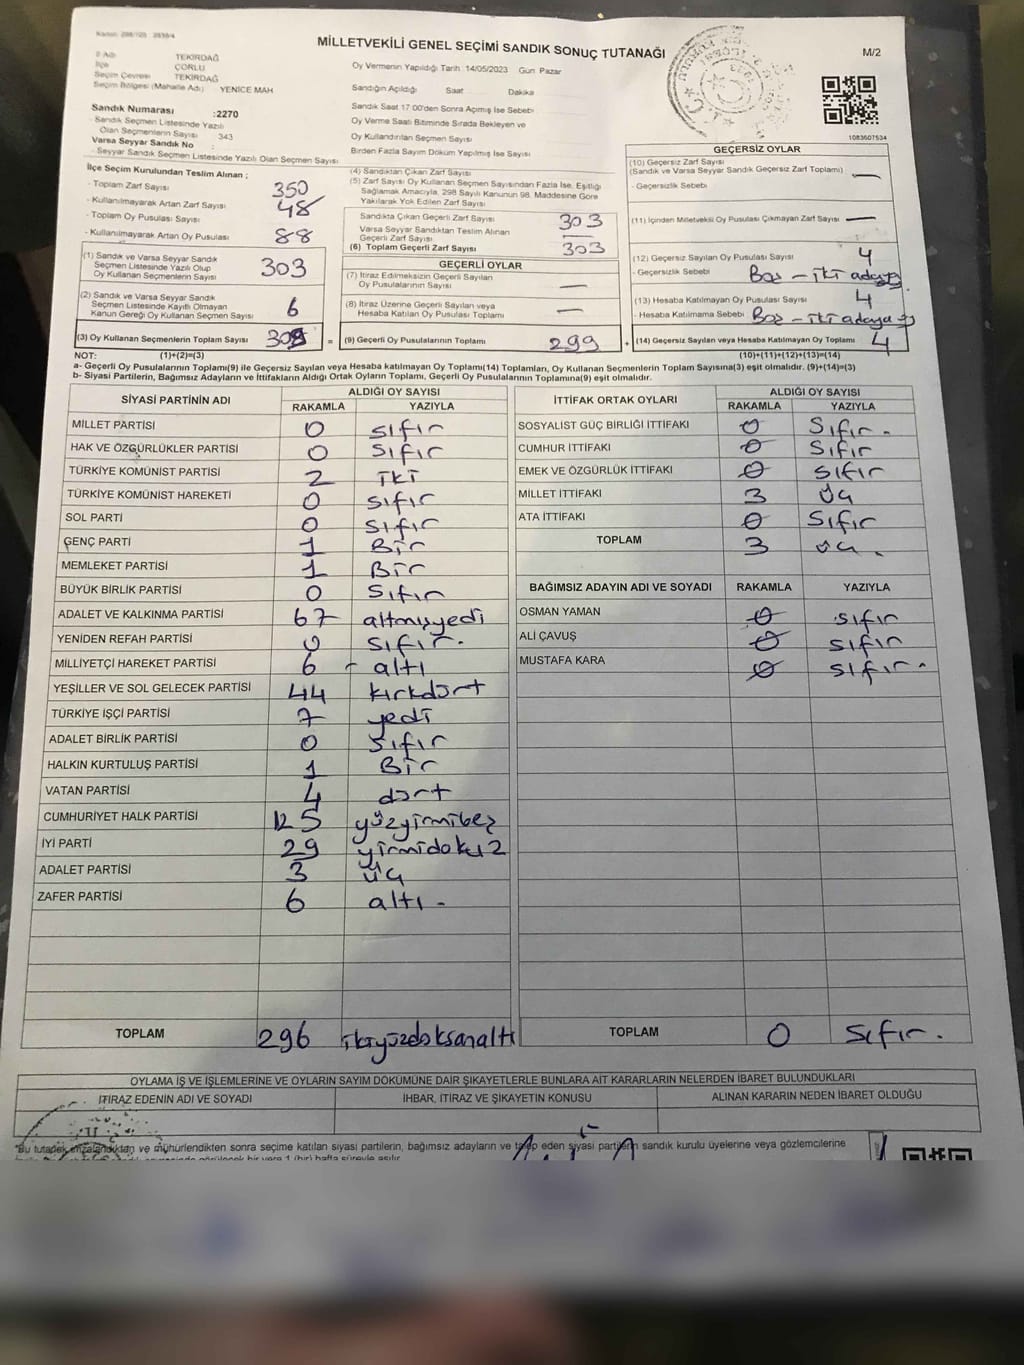 MİLLETVEKİLİ GENEL SEÇİMİ SANDIK SONUÇ TUTANAĞI
M/2
İl Adı TEKİRDAĞ
İlçe ÇORLU
Seçim Çevresi TEKİRDAĞ
Seçim Bölgesi (Mahalle Adı) YENİCE MAH
Oy Vermenin Yapıldığı Tarih :14/05/2023 Gün Pazar
Sandığın Açıldığı Saat Dakika
Sandık Saat 17:00'den Sonra Açılmış İse Sebebi
Oy Verme Saati Bitiminde Sırada Bekleyen ve
Oy Kullandırılan Seçmen Sayısı
Birden Fazla Sayım Döküm Yapılmış İse Sayısı
1083607534
Sandık Numarası :2270
- Sandık Seçmen Listesinde Yazılı
Olan Seçmenlerin Sayısı 343
Varsa Seyyar Sandık No :
- Seyyar Sandık Seçmen Listesinde Yazılı Olan Seçmen Sayısı
İlçe Seçim Kurulundan Teslim Alınan ;
- Toplam Zarf Sayısı 350
- Kullanılmayarak Artan Zarf Sayısı 48
- Toplam Oy Pusulası Sayısı
- Kullanılmayarak Artan Oy Pusulası 88
(1) Sandık ve Varsa Seyyar Sandık
Seçmen Listesinde Yazılı Olup
Oy Kullanan Seçmenlerin Sayısı 303
(2) Sandık ve Varsa Seyyar Sandık
Seçmen Listesinde Kayıtlı Olmayan
Kanun Gereği Oy Kullanan Seçmen Sayısı 6
(3) Oy Kullanan Seçmenlerin Toplam Sayısı
(4) Sandıktan Çıkan Zarf Sayısı
(5) Zarf Sayısı Oy Kullanan Seçmen Sayısından Fazla İse, Eşitliği
Sağlamak Amacıyla, 298 Sayılı Kanunun 98. Maddesine Göre
Yakılarak Yok Edilen Zarf Sayısı
Sandıkta Çıkan Geçerli Zarf Sayısı 303
Varsa Seyyar Sandıktan Teslim Alınan
Geçerli Zarf Sayısı —
(6) Toplam Geçerli Zarf Sayısı 303
GEÇERLİ OYLAR
(7) İtiraz Edilmeksizin Geçerli Sayılan
Oy Pusulalarının Sayısı —
(8) İtiraz Üzerine Geçerli Sayılan veya
Hesaba Katılan Oy Pusulası Toplamı —
= (9) Geçerli Oy Pusulalarının Toplamı 299
GEÇERSİZ OYLAR
(10) Geçersiz Zarf Sayısı
(Sandık ve Varsa Seyyar Sandık Geçersiz Zarf Toplamı) —
- Geçersizlik Sebebi
(11) İçinden Milletvekili Oy Pusulası Çıkmayan Zarf Sayısı —
(12) Geçersiz Sayılan Oy Pusulası Sayısı 4
- Geçersizlik Sebebi Boş - iki adaya
(13) Hesaba Katılmayan Oy Pusulası Sayısı 4
- Hesaba Katılmama Sebebi Boş - iki adaya
+ (14) Geçersiz Sayılan veya Hesaba Katılmayan Oy Toplamı 4
NOT: (1)+(2)=(3) (10)+(11)+(12)+(13)=(14)
a- Geçerli Oy Pusulalarının Toplamı(9) ile Geçersiz Sayılan veya Hesaba katılmayan Oy Toplamı(14) Toplamları, Oy Kullanan Seçmenlerin Toplam Sayısına(3) eşit olmalıdır. (9)+(14)=(3)
b- Siyasi Partilerin, Bağımsız Adayların ve İttifakların Aldığı Ortak Oyların Toplamı, Geçerli Oy Pusulalarının Toplamına(9) eşit olmalıdır.
SİYASİ PARTİNİN ADI ALDIĞI OY SAYISI
RAKAMLA YAZIYLA
MİLLET PARTİSİ 0 sıfır
HAK VE ÖZGÜRLÜKLER PARTİSİ 0 sıfır
TÜRKİYE KOMÜNİST PARTİSİ 2 iki
TÜRKİYE KOMÜNİST HAREKETİ 0 sıfır
SOL PARTİ 0 sıfır
GENÇ PARTİ 1 Bir
MEMLEKET PARTİSİ 1 Bir
BÜYÜK BİRLİK PARTİSİ 0 sıfır
ADALET VE KALKINMA PARTİSİ 67 altmışyedi
YENİDEN REFAH PARTİSİ 0 sıfır.
MİLLİYETÇİ HAREKET PARTİSİ 6 altı
YEŞİLLER VE SOL GELECEK PARTİSİ 44 kırkdört
TÜRKİYE İŞÇİ PARTİSİ 7 yedi
ADALET BİRLİK PARTİSİ 0 sıfır
HALKIN KURTULUŞ PARTİSİ 1 Bir
VATAN PARTİSİ 4 dört
CUMHURİYET HALK PARTİSİ 125 yüzyirmibeş
İYİ PARTİ 29 yirmidokuz
ADALET PARTİSİ 3 üç
ZAFER PARTİSİ 6 altı -
TOPLAM 296 ikiyüzdoksanaltı
İTTİFAK ORTAK OYLARI ALDIĞI OY SAYISI
RAKAMLA YAZIYLA
SOSYALİST GÜÇ BİRLİĞİ İTTİFAKI 0 Sıfır -
CUMHUR İTTİFAKI 0 Sıfır
EMEK VE ÖZGÜRLÜK İTTİFAKI 0 sıfır
MİLLET İTTİFAKI 3 üç
ATA İTTİFAKI 0 Sıfır
TOPLAM 3 üç .
BAĞIMSIZ ADAYIN ADI VE SOYADI RAKAMLA YAZIYLA
OSMAN YAMAN 0 sıfır
ALİ ÇAVUŞ 0 sıfır
MUSTAFA KARA 0 sıfır.
TOPLAM 0 sıfır.
OYLAMA İŞ VE İŞLEMLERİNE VE OYLARIN SAYIM DÖKÜMÜNE DAİR ŞİKAYETLERLE BUNLARA AİT KARARLARIN NELERDEN İBARET BULUNDUKLARI
İTİRAZ EDENİN ADI VE SOYADI İHBAR, İTİRAZ VE ŞİKAYETİN KONUSU ALINAN KARARIN NEDEN İBARET OLDUĞU
*Bu tutanak imzalandıktan ve mühürlendikten sonra seçime katılan siyasi partilerin, bağımsız adayların ve talep eden siyasi partilerin sandık kurulu üyelerine veya gözlemcilerine